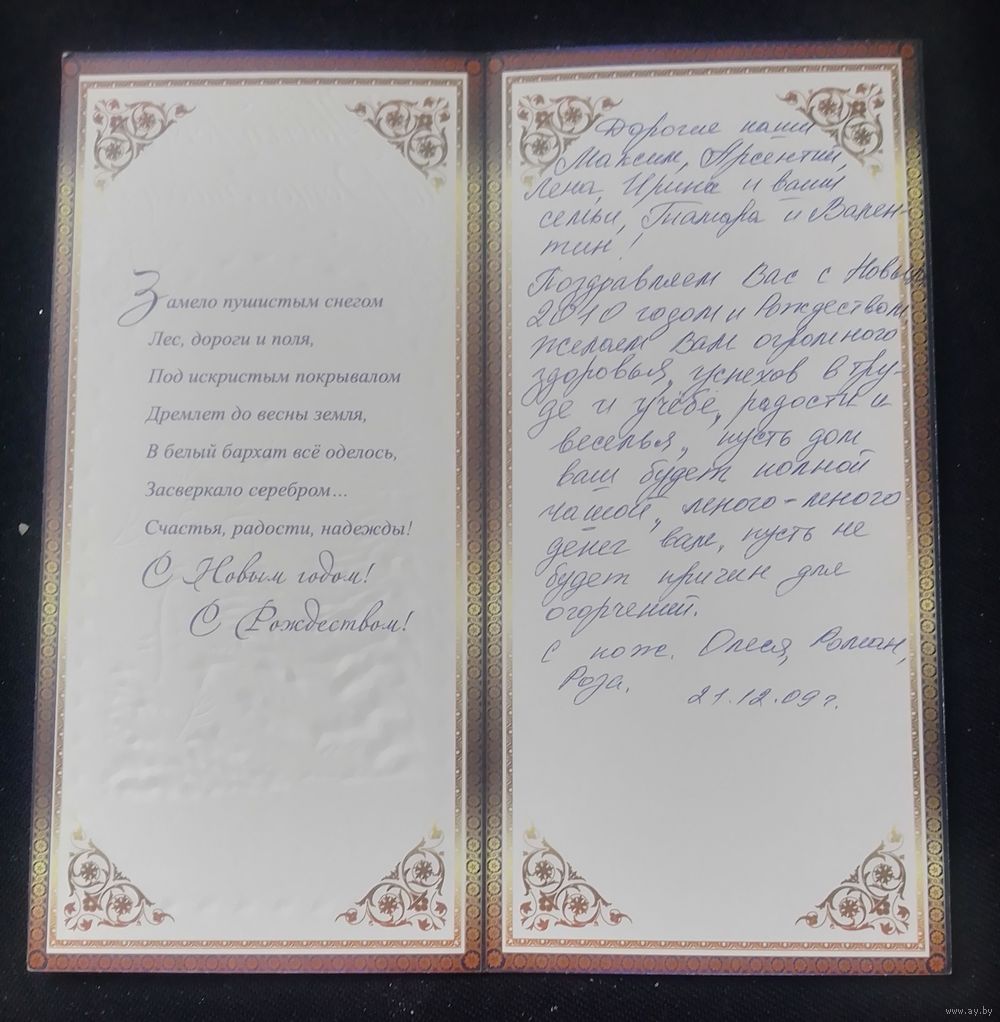 Замело пушистым снегом
Лес, дороги и поля,
Под искристым покрывалом
Дремлет до весны земля,
В белый бархат всё оделось,
Засверкало серебром...
Счастья, радости, надежды!
С Новым годом!
С Рождеством!
Дорогие наши
Максим, Арсентий,
Лена, Ирина и ваши
семьи, Тамара и Вален-
тин!
Поздравляем Вас с Новым
2010 годом и Рождеством
желаем Вам огромного
здоровья, успехов в тру-
де и учёбе, радости и
веселья, пусть дом
ваш будет полной
чашой, много-много
денег вам, пусть не
будет причин для
огорчений.
с пож. Олеся, Роман,
Роза.
21.12.09 г.
www.ay.by